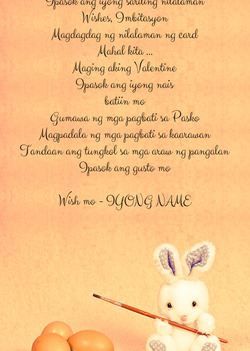 Ipasok ang iyong sariling nilalaman
Wishes, Imbitasyon
Magdagdag ng nilalaman ng card
Mahal kita ...
Maging aking Valentine
Ipasok ang iyong nais
batiin mo
Gumawa ng mga pagbati sa Pasko
Magpadala ng mga pagbati sa kaarawan
Tandaan ang tungkol sa mga araw ng pangalan
Ipasok ang gusto mo
Wish mo - IYONG NAME